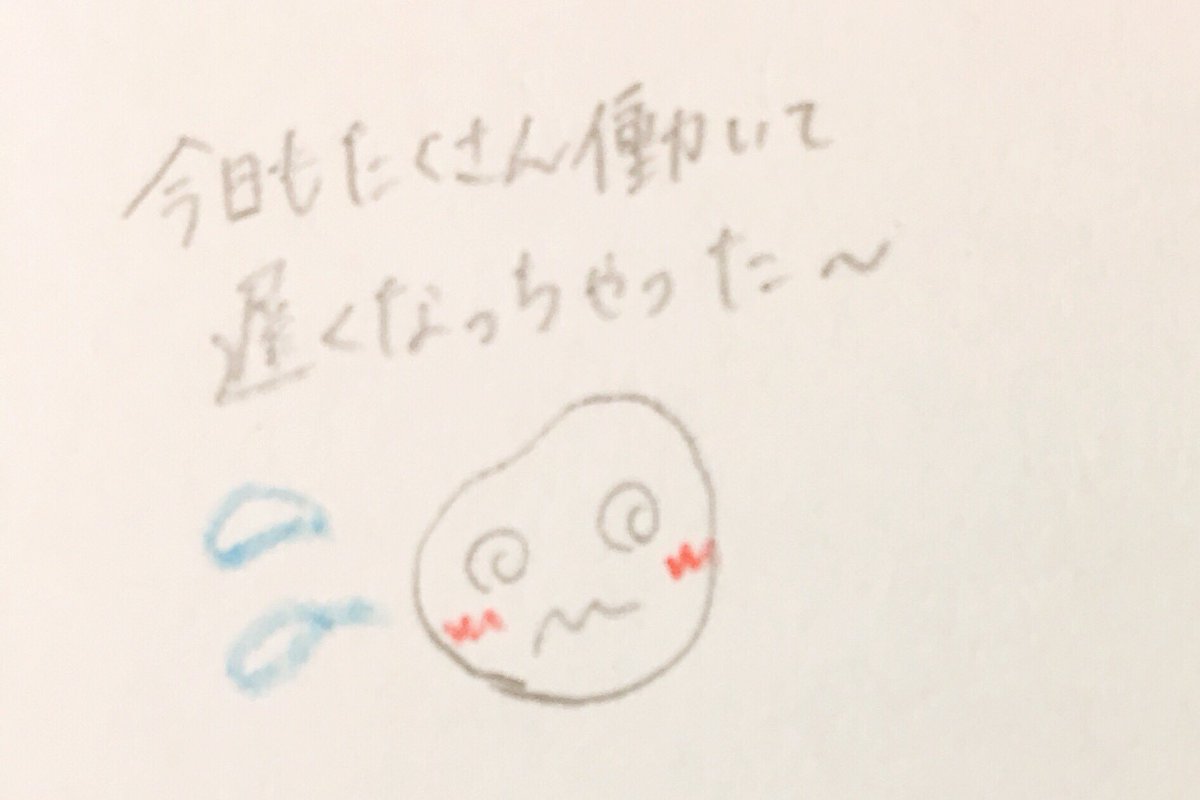 今日もたくさん働いて
遅くなっちゃった〜